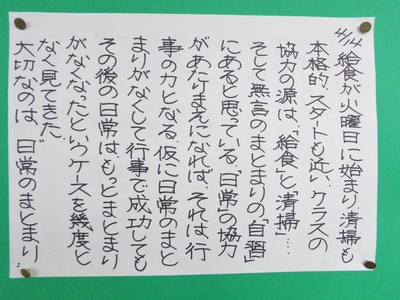 4/14 給食が火曜日に始まり、清掃も
本格的スタートも近い。クラスの
協力の源は、「給食」と「清掃」…
そして無言のまとまりの「自習」
にあると思っている。「日常」の協力
があたりまえになれば、それは行
事の力となる。仮に日常のまと
まりがなくして行事で成功しても
その後の日常は、もっとまとまり
がなくなったというケースを幾度と
なく見てきた。
大切なのは、日常のまとまり…